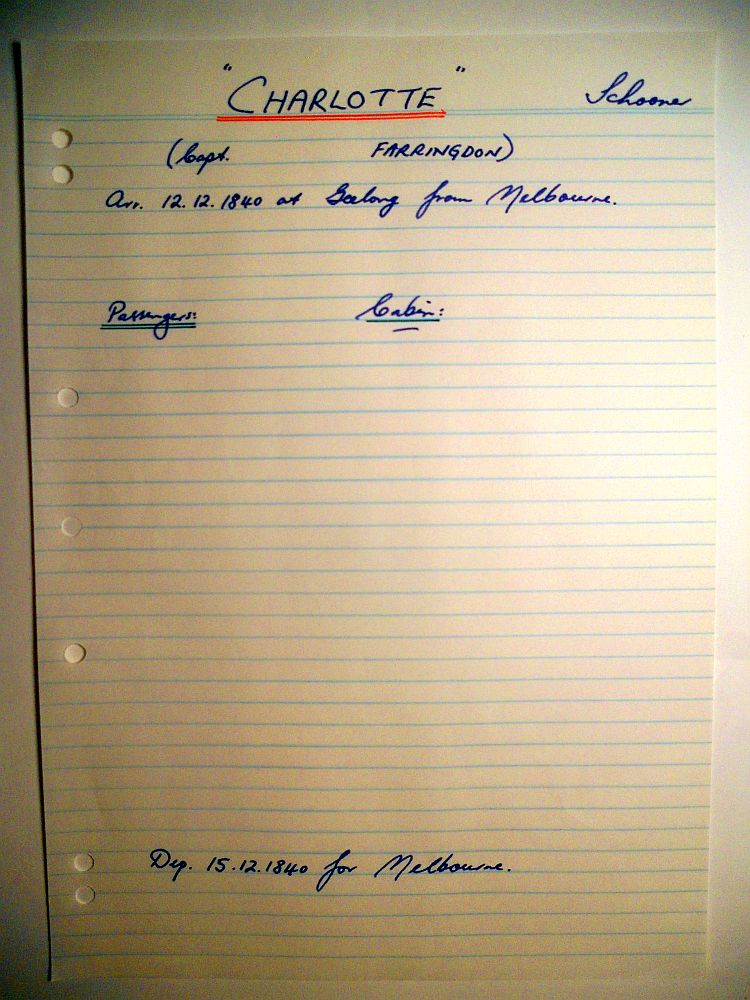 "CHARLOTTE" Schooner
(Capt. FARRINGDON)
Arr. 12.12.1840 at Geelong from Melbourne.
Passengers: Cabin:
Dep. 15.12.1840 for Melbourne.